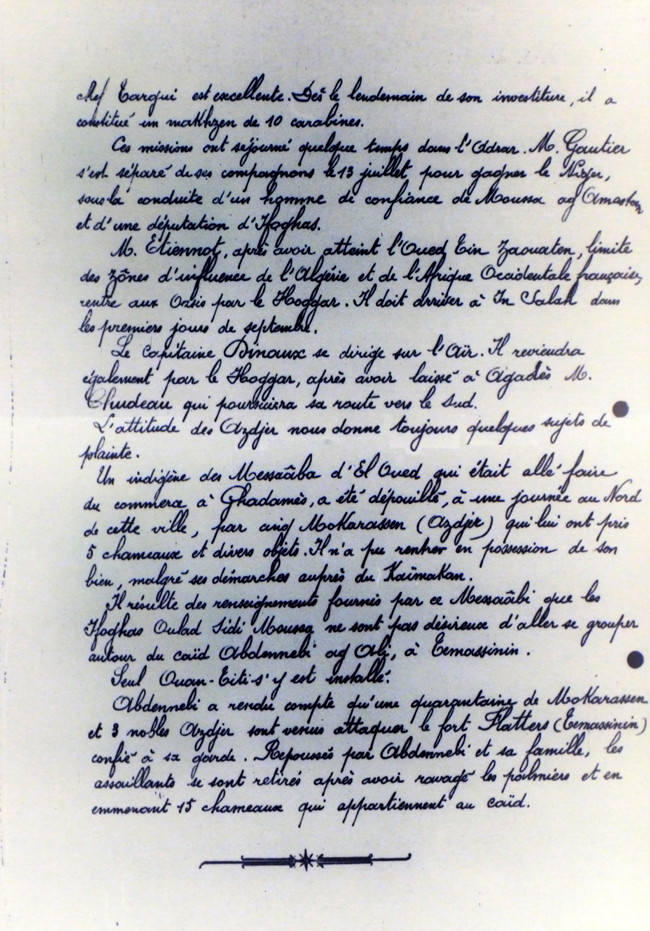 chef Targui est excellente. Dès le lendemain de son investiture, il a
constitué un makhzen de 10 carabines.
Ces missions ont séjourné quelque temps dans l'Adrar. M. Gautier
s'est séparé de ses compagnons le 13 juillet pour gagner le Niger,
sous la conduite d'un homme de confiance de Moussa ag Amastan
et d'une députation d'Ifoghas.
M. Etiennot, après avoir atteint l'Oued Tin Zaouaten, limite
des zônes d'influence de l'Algérie et de l'Afrique Occidentale française,
rentre aux Oasis par le Hoggar. Il doit arriver à In Salah dans
les premiers jours de septembre.
Le capitaine Dinaux se dirige sur l'Aïr. Il reviendra
également par le Hoggar, après avoir laissé à Agadès M.
Chudeau qui poursuivra sa route vers le Sud.
L'attitude des Azdjer nous donne toujours quelques sujets de
plainte.
Un indigène des Messaâba d'El Oued qui était allé faire
du commerce à Ghadamès, a été dépouillé, à une journée au Nord
de cette ville, par cinq Mokarassen (Azdjer) qui lui ont pris
5 chameaux et divers objets. Il n'a pu rentrer en possession de son
bien, malgré ses démarches auprès du Kaïmakan.
Il résulte des renseignements fournis par ce Messaâbi que les
Ifoghas Oulad Sidi Moussa ne sont pas désireux d'aller se grouper
autour du caïd Abdennebi ag Ali, à Temassinin.
Seul Ouan-Titi s'y est installé.
Abdennebi a rendu compte qu'une quarantaine de Mokarassen
et 3 nobles Azdjer sont venus attaquer le fort Flatters (Temassinin)
confié à sa garde. Repoussés par Abdennebi et sa famille, les
assaillants se sont retirés après avoir ravagé les palmiers et en
emmenant 15 chameaux qui appartiennent au caïd.